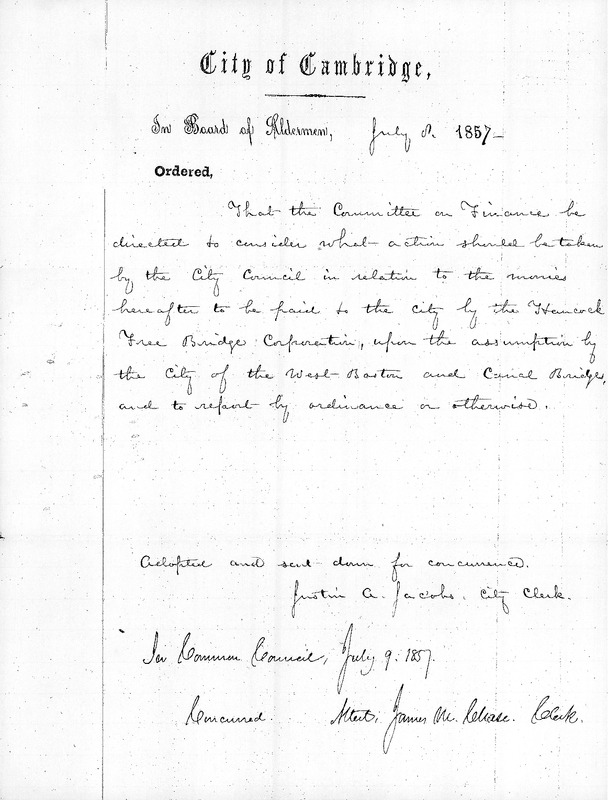 City of Cambridge,
In Board of Aldermen, July 8. 1857
Ordered,
That the Committee on Finance be
directed to consider what action should be taken
by the City Council in relation to the monies
hereafter to be paid to the city by the Hancock
Free Bridge Corporation, upon the assumption by
the City of the West Boston and Canal Bridges,
and to report by ordinance or otherwise.
Adopted and sent down for concurrence.
Justin A. Jacobs, City Clerk.
In Common Council, July 9. 1857.
Concurred. Attest, James M. Chase. Clerk.